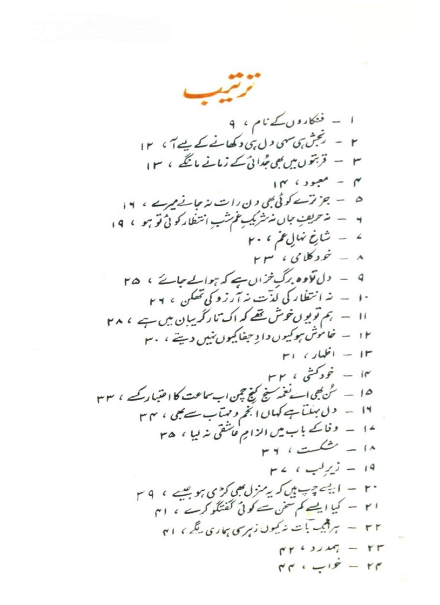 ترتیب
۱ – فنکاروں کے نام ، ۹
۲ – رنجش ہی سہی دل ہی دکھانے کے لیے آ ، ۱۲
۳ – قربتوں میں بھی جُدائی کے زمانے مانگے ، ۱۳
۴ – معبود ، ۱۴
۵ – جز ترے کوئی بھی دن رات نہ جانے میرے ، ۱۶
۶ – نہ حریفِ جاں نہ شریکِ غم شبِ انتظار کوئی تو ہو ، ۱۹
۷ – شاخِ نہالِ غم ، ۲۰
۸ – خود کلامی ، ۲۳
۹ – دل تو وہ برگِ خزاں ہے کہ ہوا لے جائے ، ۲۵
۱۰ – نہ انتظار کی لذّت نہ آرزو کی تھکن ، ۲۶
۱۱ – ہم تو یوں خوش تھے کہ اک تار گریبان میں ہے ، ۲۸
۱۲ – خاموش ہو کیوں دادِ جفا کیوں نہیں دیتے ، ۳۰
۱۳ – اظہار ، ۳۱
۱۴ – خودکشی ، ۳۲
۱۵ – سُن بھی اے نغمہ سنجِ کنجِ چمن اب سماعت کا اعتبار کسے ، ۳۳
۱۶ – دل بہلتا ہے کہاں انجم و مہتاب سے بھی ، ۳۴
۱۷ – وفا کے باب میں الزامِ عاشقی نہ لیا ، ۳۵
۱۸ – شکست ، ۳۶
۱۹ – زیرِ لب ، ۳۷
۲۰ – ایسے چپ ہیں کہ یہ منزل بھی کڑی ہو جیسے ، ۳۹
۲۱ – کیا ایسے کم سخن سے کوئی گفتگو کرے ، ۴۱
۲۲ – ہر ایک بات نہ کیوں زہر سی ہماری لگے ، ۴۱
۲۳ – ہمدرد ، ۴۲
۲۴ – خواب ، ۴۴